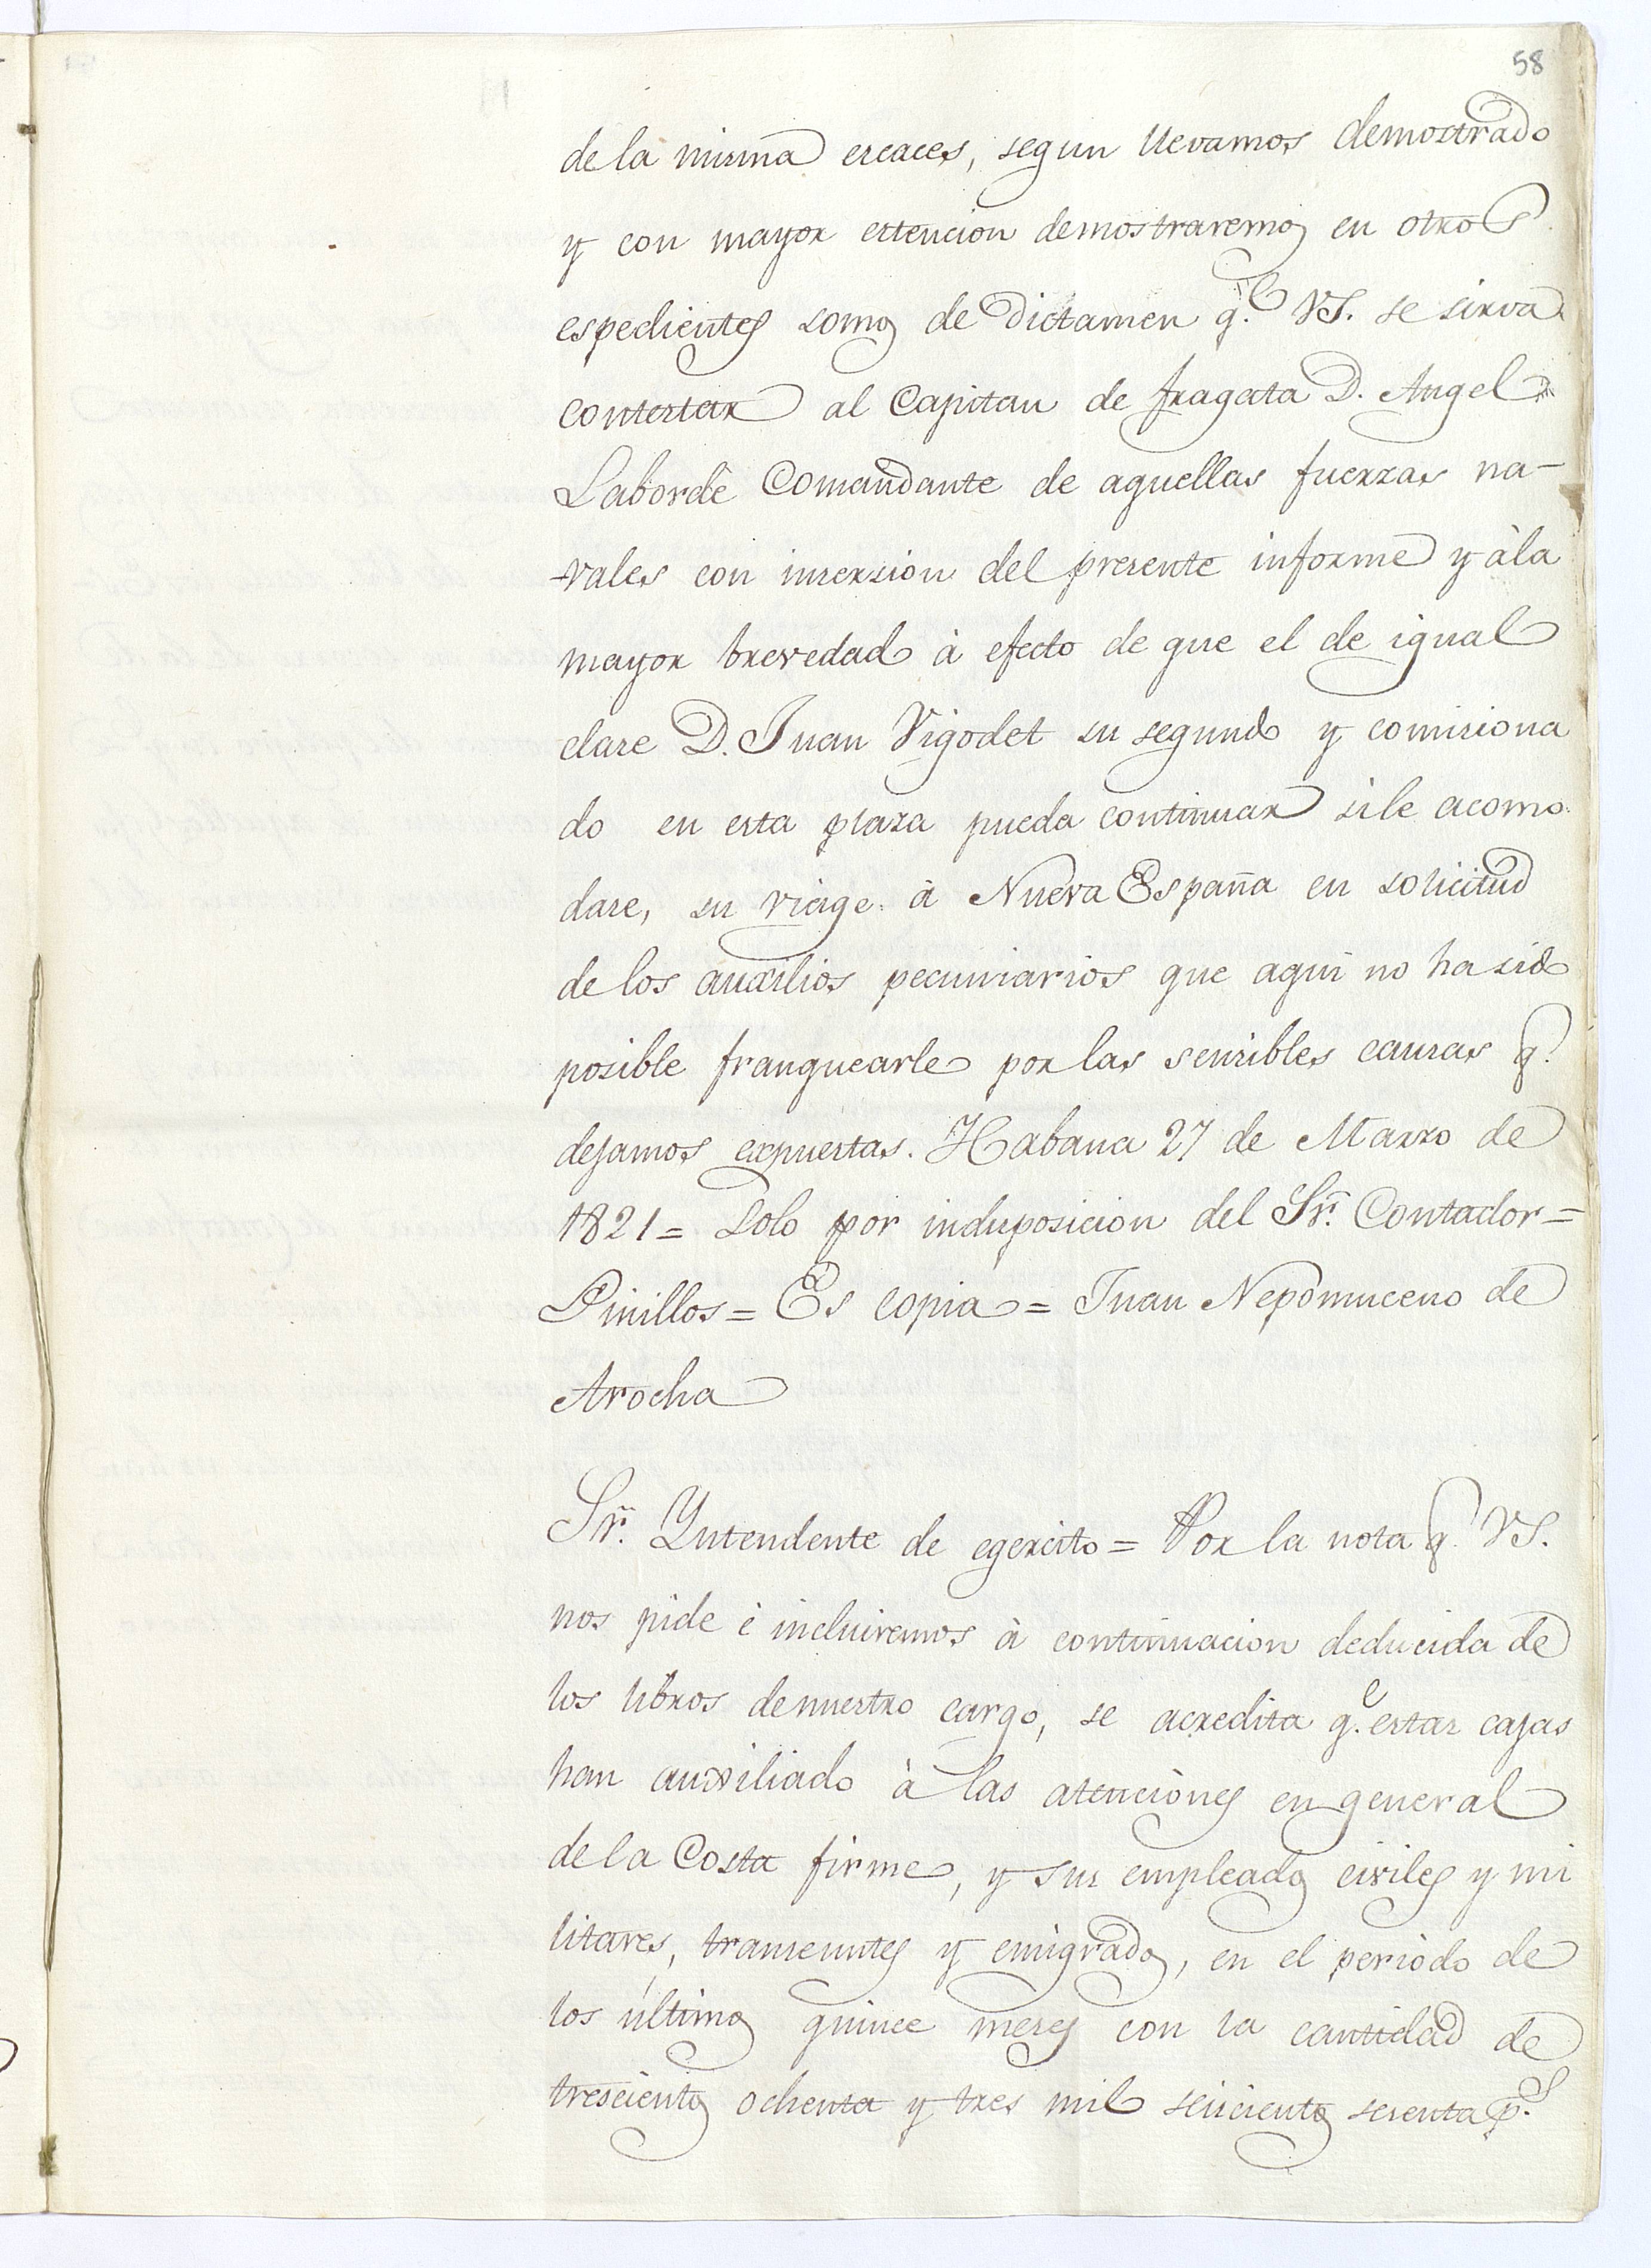 58
de la misma escaces, segun llevamos demostrado
y con mayor estencion demostraremos en otros
espedientes somos de dictamen q.e VS. se sirva
contestar al Capitan de fragata D. Angel
Laborde Comandante de aquellas fuerzas na-
-vales con insersion del presente informe y à la
mayor brevedad à efecto de que el de igual
clase D. Juan Vigodet su segundo y comisiona
do en esta plaza pueda continuar si le acomo
dase, su viage à Nueva España en solicitud
de los auxilios pecuniarios que aqui no ha sido
posible franquearle por las sensibles causas q.e
dejamos expuestas. Habana 27 de Marzo de
1821 = Solo por indisposicion del Sr. Contador =
Pinillos = Es copia = Juan Nepomuceno de
Arocha
Sr. Yntendente de egercito = Por la nota q.e VS.
nos pide è incluiremos à continuacion deducida de
los libros de nuestro cargo, se acredita q.e estas cajas
han auxiliado à las atenciones en general
de la Costa firme, y sus empleados civiles y mi
litares, transeuntes y emigrados, en el periodo de
los últimos quince meses con la cantidad de
trescientos ochenta y tres mil seiscientos sesenta p.s